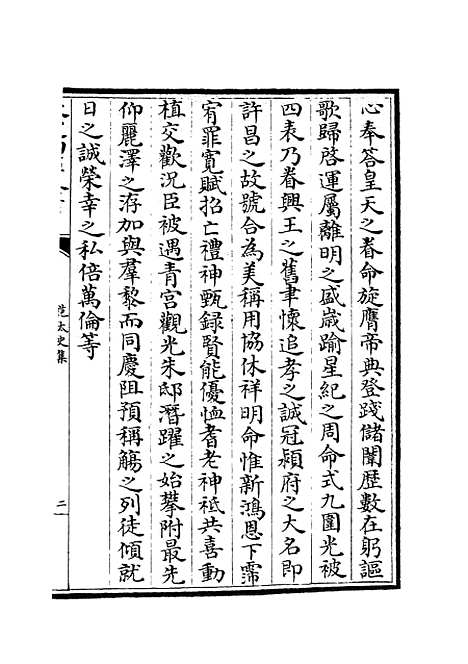 心奉答皇天之眷命旋膺帝典登踐儲闈歴數在躬謳
歌歸啓運屬離明之盛歳踰星紀之周命式九圍光被
四表乃眷興王之舊聿懷追孝之誠冠潁府之大名即
許昌之故號合為美稱用協休祥明命惟新鴻恩下霈
宥罪寛賦招亡禮神甄録賢能優恤耆老神祇共喜動
植交歡況臣被遇青宮觀光朱邸潛躍之始攀附最先
仰麗澤之洊加與羣黎而同慶阻預稱觴之列徒傾就
日之誠榮幸之私倍萬倫等
范太史集
二